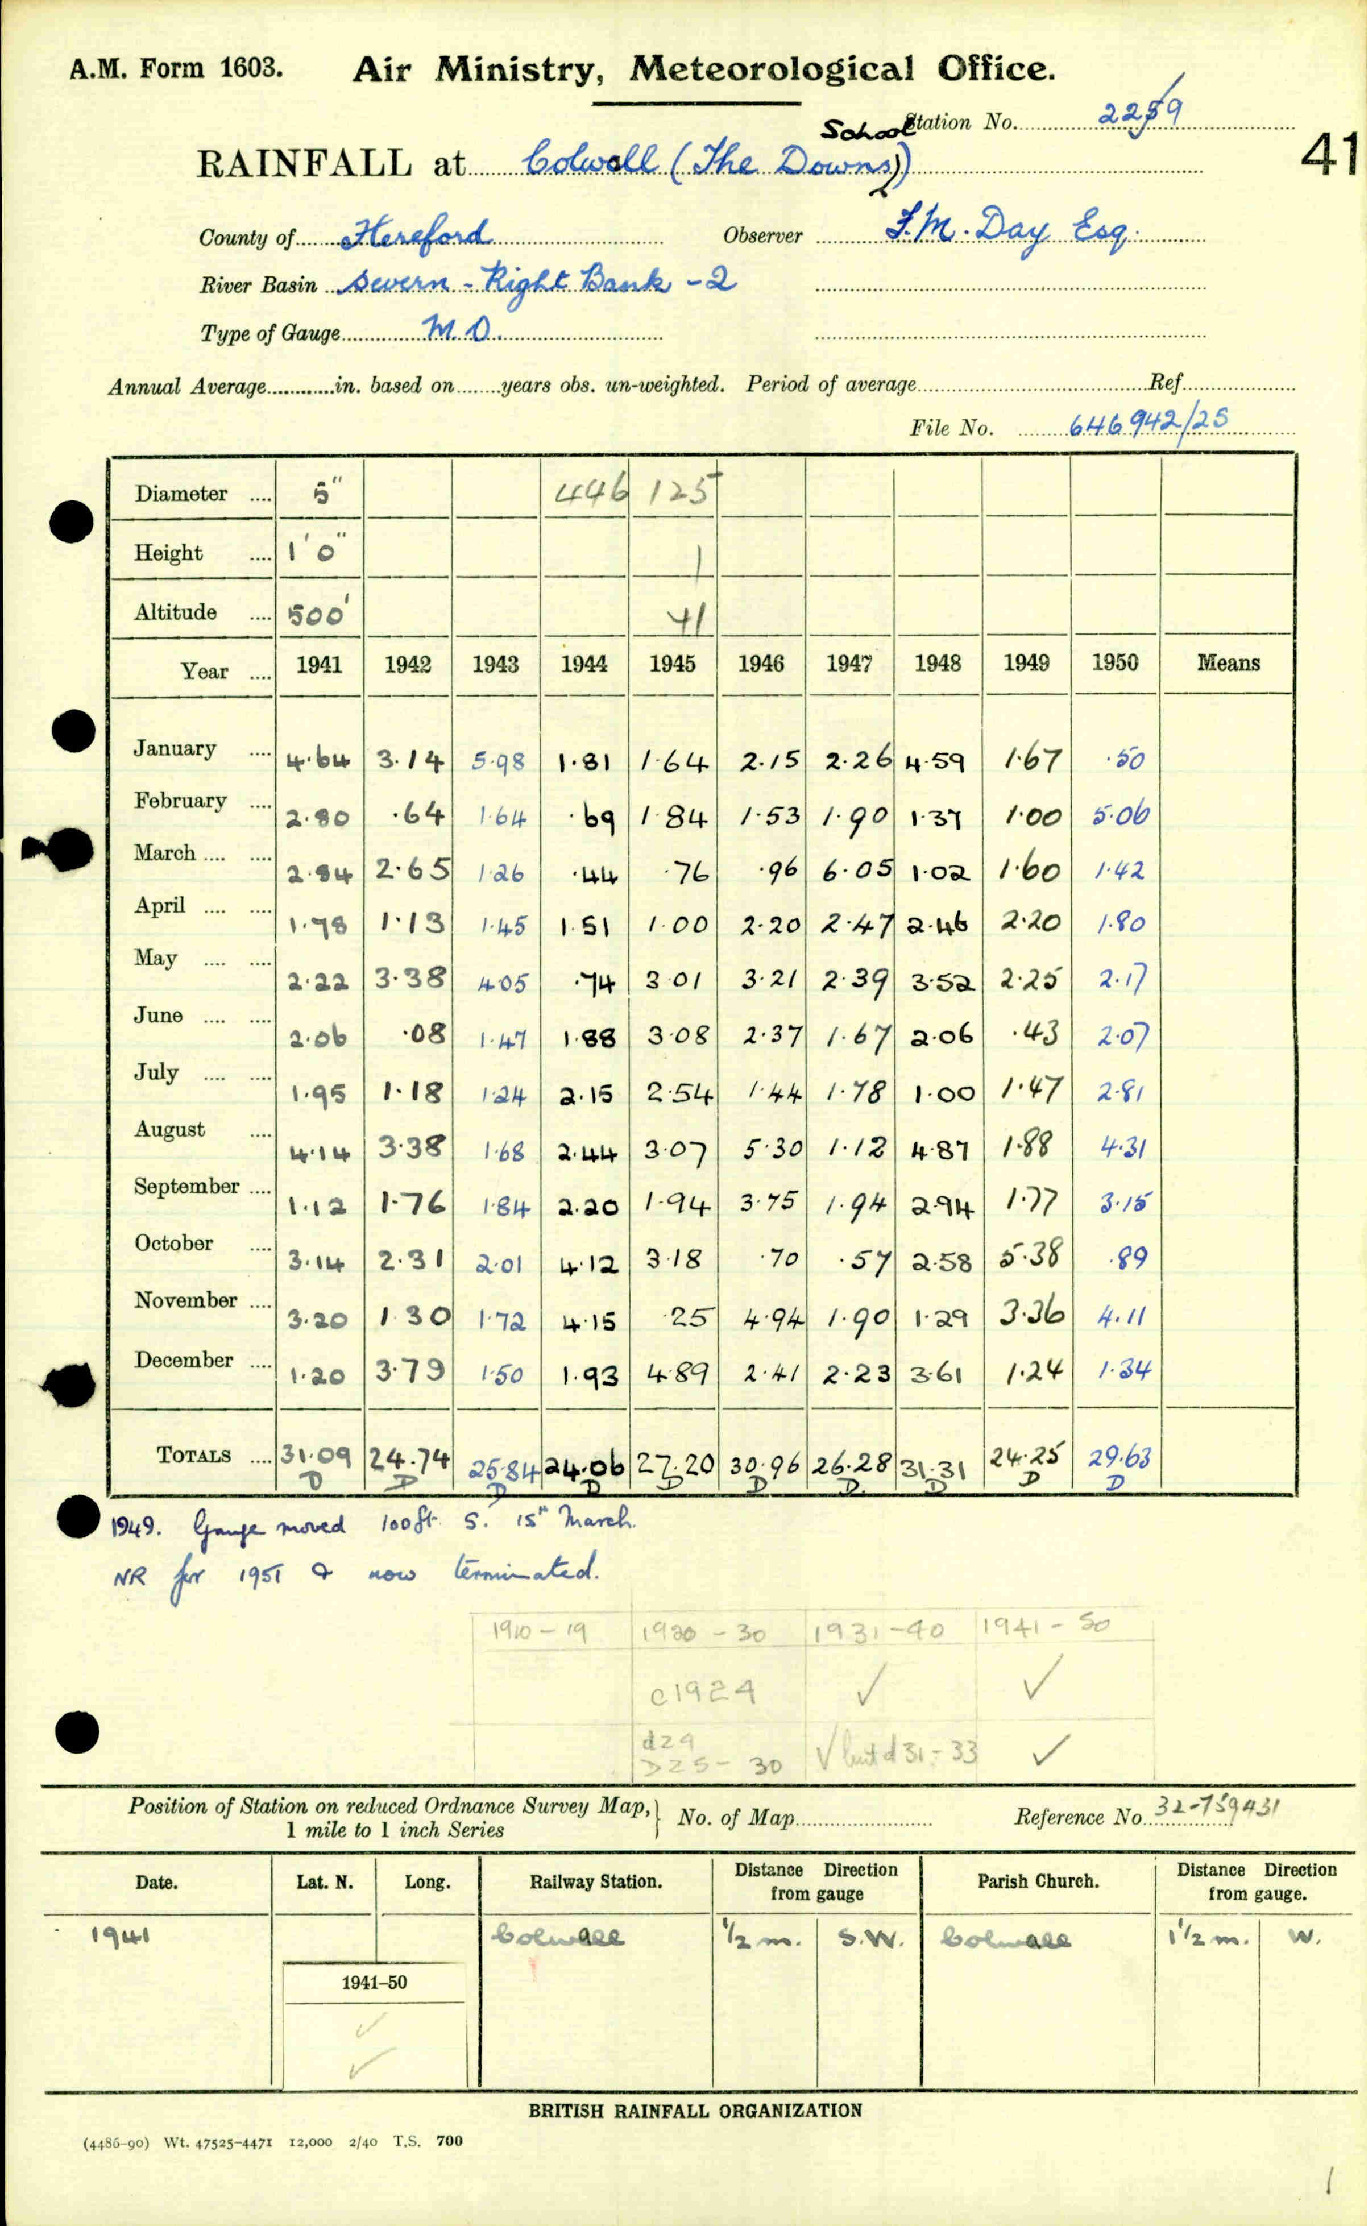 A.M. Form 1603. Air Ministry, Meteorological Office.
Station No. 2259
School
RAINFALL at Colwall (The Downs)
41
County of Hereford Observer F.M. Day Esq.
River Basin Severn - Right Bank - 2
Type of Gauge M.O.
Annual Average in. based on years obs. un-weighted. Period of average Ref
File No. 646942/25
Diameter .... 5" 446 125
Height .... 1'0" 1
Altitude .... 500' 41
Year .... 1941 1942 1943 1944 1945 1946 1947 1948 1949 1950 Means
January .... 4.64 3.14 5.98 1.81 1.64 2.15 2.26 4.59 1.67 .50
February .... 2.80 .64 1.64 .69 1.84 1.53 1.90 1.37 1.00 5.06
March .... .... 2.84 2.65 1.26 .44 .76 .96 6.05 1.02 1.60 1.42
April .... .... 1.78 1.13 1.45 1.51 1.00 2.20 2.47 2.46 2.20 1.80
May .... .... 2.22 3.38 4.05 .74 3.01 3.21 2.39 3.52 2.25 2.17
June .... .... 2.06 .08 1.47 1.88 3.08 2.37 1.67 2.06 .43 2.07
July .... .... 1.95 1.18 1.24 2.15 2.54 1.44 1.78 1.00 1.47 2.81
August .... 4.14 3.38 1.68 2.44 3.07 5.30 1.12 4.87 1.88 4.31
September .... 1.12 1.76 1.84 2.20 1.94 3.75 1.94 2.94 1.77 3.15
October .... 3.14 2.31 2.01 4.12 3.18 .70 .57 2.58 5.38 .89
November .... 3.20 1.30 1.72 4.15 .25 4.94 1.90 1.29 3.36 4.11
December .... 1.20 3.79 1.50 1.93 4.89 2.41 2.23 3.61 1.24 1.34
TOTALS .... 31.09 24.74 25.84 24.06 27.20 30.96 26.28 31.31 24.25 29.63
D D D D D D D D D D
1949. Gauge moved 100ft. S. 15th March.
NR for 1951 & now terminated.
1910 - 19 1920 - 30 1931 - 40 1941 - 50
c1924 ✓ ✓
d29
>25 - 30 ✓ but d 31 - 33 ✓
Position of Station on reduced Ordnance Survey Map,
1 mile to 1 inch Series
No. of Map Reference No. 32-759431
Date. Lat. N. Long. Railway Station. Distance Direction from gauge Parish Church. Distance Direction from gauge.
1941 Colwall 1/2 m. S.W. Colwall 1 1/2 m. W.
1941–50
✓
✓
BRITISH RAINFALL ORGANIZATION
(4486–90) Wt. 47525–4471 12,000 2/40 T.S. 700
1